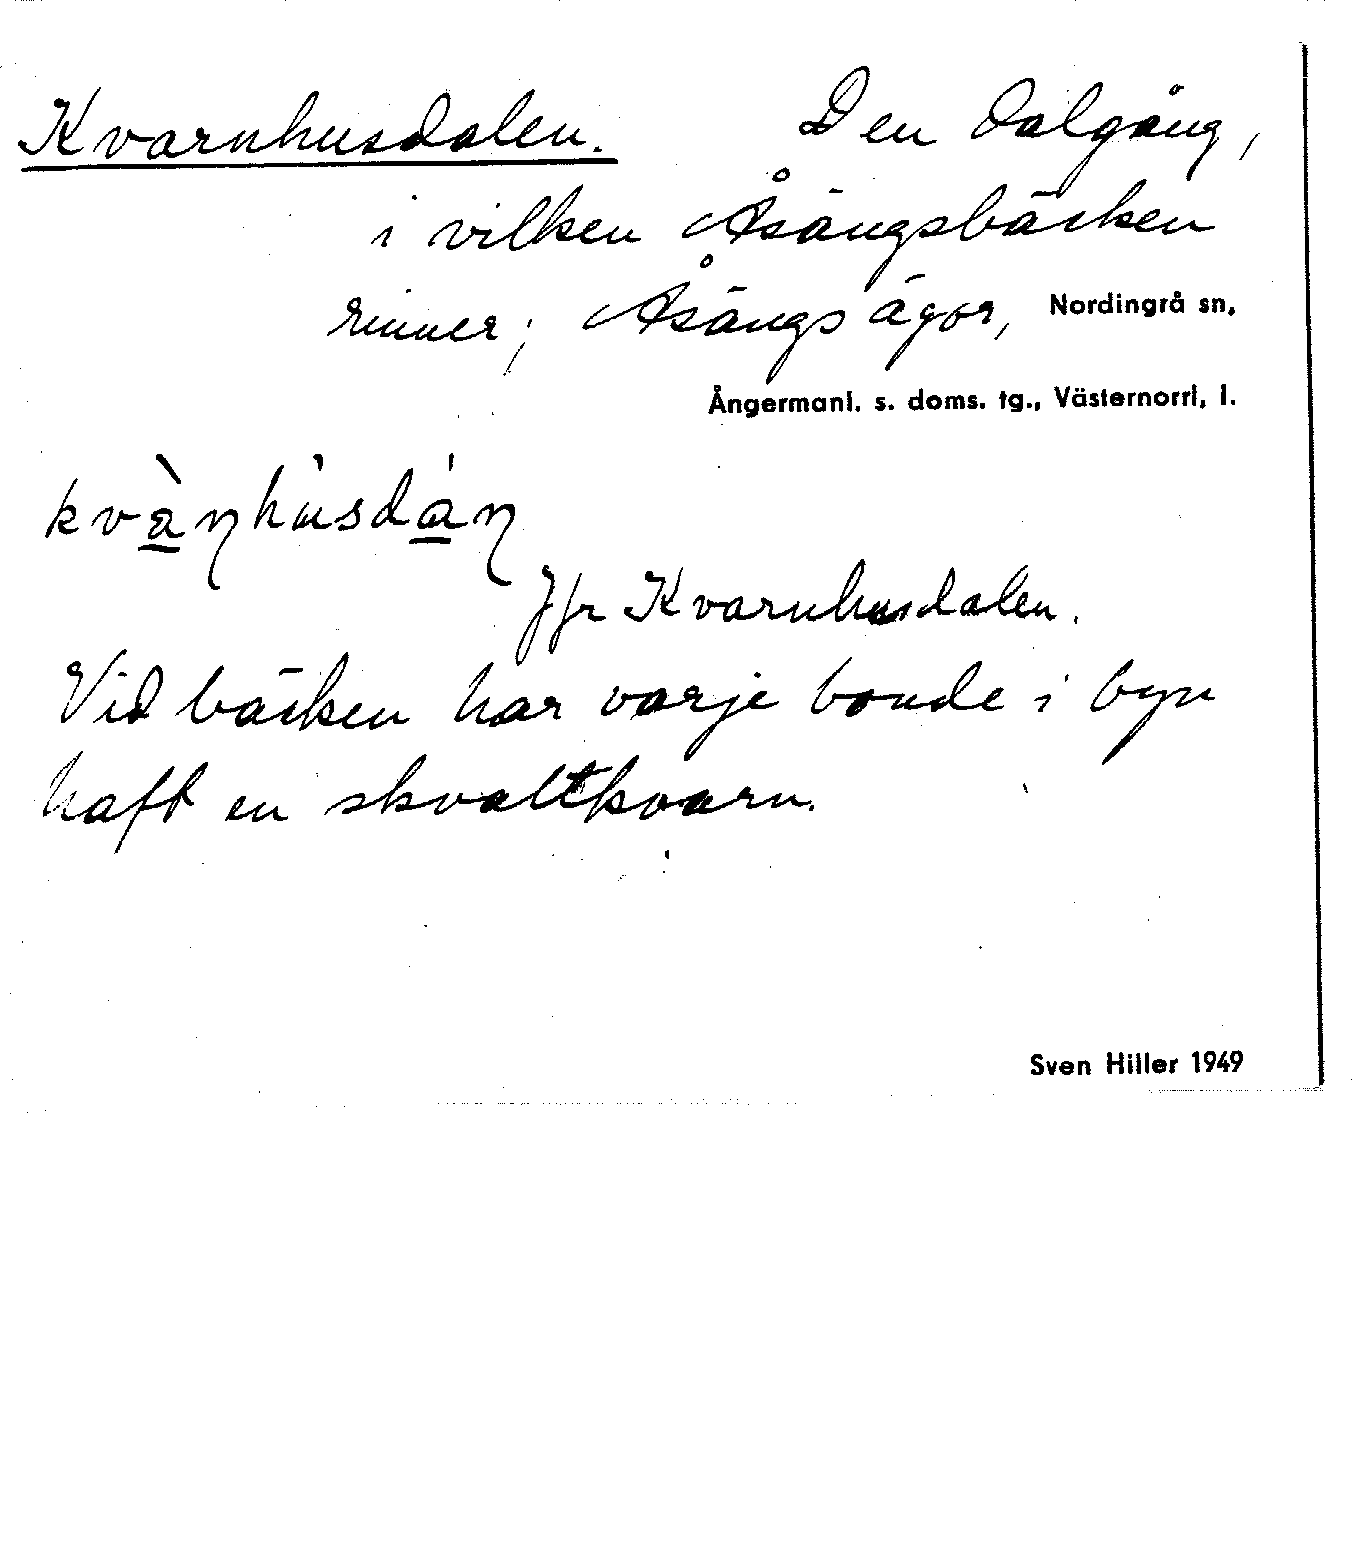 Kvarnhusdalen. Den dalgång,
i vilken Åsängsbäcken
rinner; Åsängs ägor, Nordingrå sn,
Ångermanl. s. doms. tg., Västernorrl. l.
kvàɳhùsdáɳ
Jfr Kvarnhusdalen.
Vid bäcken har varje bonde i byn
haft en skvaltkvarn.
Sven Hiller 1949